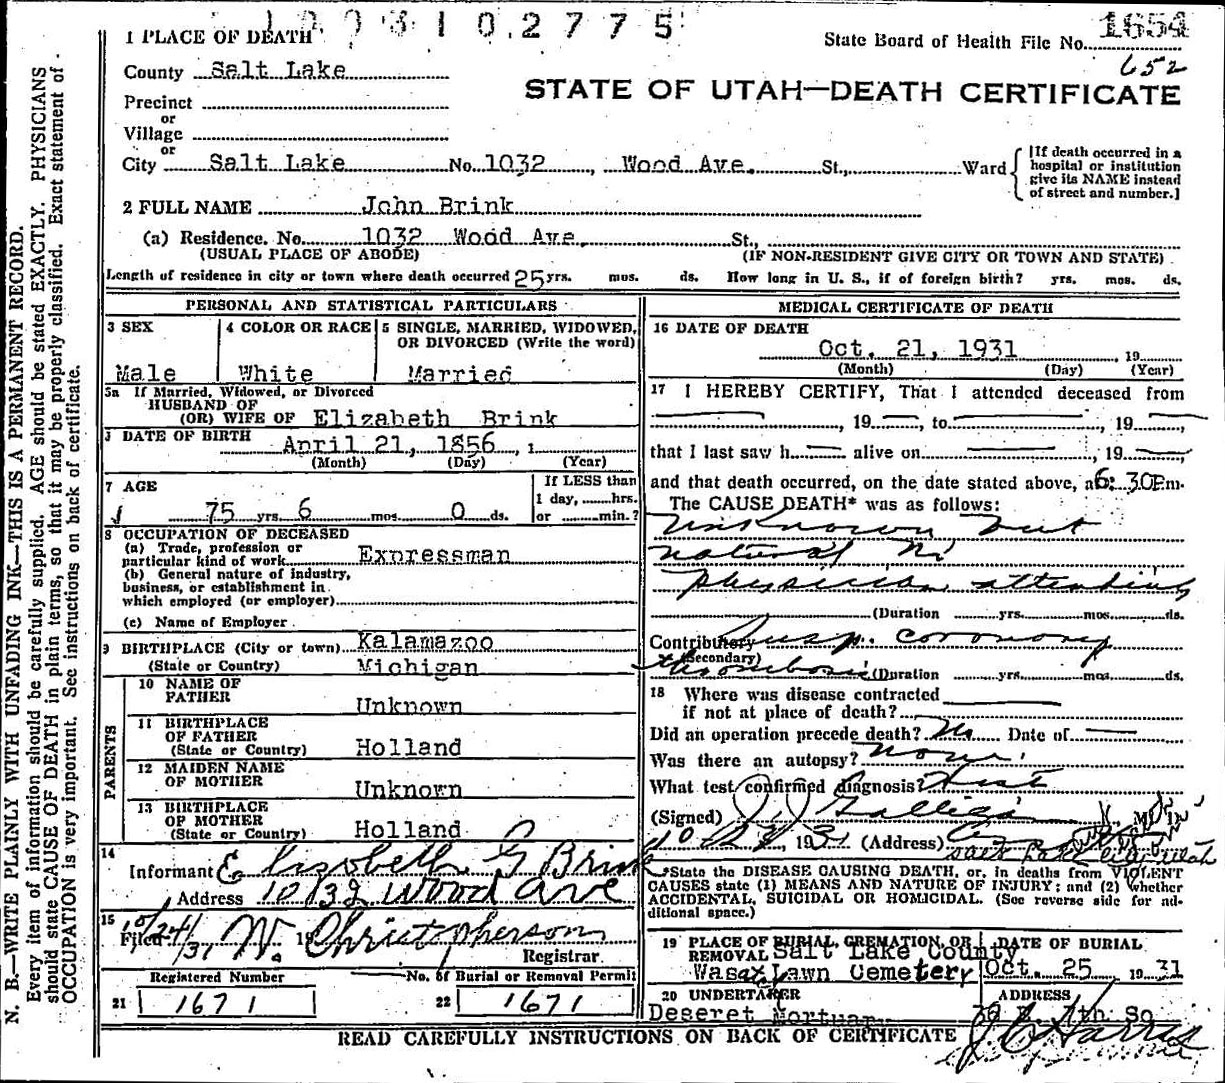 1003102775
1654
State Board of Health File No.
652
1 PLACE OF DEATH
County Salt Lake
STATE OF UTAH—DEATH CERTIFICATE
Precinct
or
Village
or
City Salt Lake No. 1032, Wood Ave. St., Ward
[If death occurred in a hospital or institution give its NAME instead of street and number.]
2 FULL NAME John Brink
(a) Residence. No. 1032 Wood Ave. St.,
(USUAL PLACE OF ABODE) (IF NON-RESIDENT GIVE CITY OR TOWN AND STATE)
Length of residence in city or town where death occurred 25 yrs. mos. ds. How long in U. S., if of foreign birth? yrs. mos. ds.
PERSONAL AND STATISTICAL PARTICULARS
3 SEX
Male
4 COLOR OR RACE
White
5 SINGLE, MARRIED, WIDOWED,
OR DIVORCED (Write the word)
Married
5a If Married, Widowed, or Divorced
HUSBAND OF
(OR) WIFE OF Elizabeth Brink
DATE OF BIRTH April 21, 1856, 1
(Month) (Day) (Year)
7 AGE
75 yrs. 6 mos. 0 ds.
If LESS than
1 day, hrs.
or min.?
8 OCCUPATION OF DECEASED
(a) Trade, profession or
particular kind of work Expressman
(b) General nature of industry,
business, or establishment in
which employed (or employer)
(c) Name of Employer
9 BIRTHPLACE (City or town) Kalamazoo
(State or Country) Michigan
PARENTS
10 NAME OF
FATHER Unknown
11 BIRTHPLACE
OF FATHER
(State or Country) Holland
12 MAIDEN NAME
OF MOTHER Unknown
13 BIRTHPLACE
OF MOTHER
(State or Country) Holland
14
Informant Elizabeth G Brink
Address 1032 Wood Ave
15
Filed 10/24/31 W. Christopherson
Registrar.
Registered Number
21 1671
No. of Burial or Removal Permit
22 1671
MEDICAL CERTIFICATE OF DEATH
16 DATE OF DEATH
Oct. 21, 1931, 19
(Month) (Day) (Year)
17 I HEREBY CERTIFY, That I attended deceased from
, 19 , to , 19
that I last saw h alive on , 19
and that death occurred, on the date stated above, at 6:30P.m.
The CAUSE DEATH* was as follows:
Unknown but
natural No
physician attending
(Duration yrs. mos. ds.
Contributory Susp. coronary
(Secondary)
thrombosis (Duration yrs. mos. ds.
18 Where was disease contracted
if not at place of death?
Did an operation precede death? No Date of
Was there an autopsy? None
What test confirmed diagnosis? Hist
(Signed) J J Galligan, M. D.
10 1931 (Address)
Salt Lake City Utah
*State the DISEASE CAUSING DEATH, or, in deaths from VIOLENT
CAUSES state (1) MEANS AND NATURE OF INJURY; and (2) whether
ACCIDENTAL, SUICIDAL OR HOMICIDAL. (See reverse side for ad-
ditional space.)
19 PLACE OF BURIAL, CREMATION, OR
REMOVAL Salt Lake County
Wasatch Lawn Cemetery
DATE OF BURIAL
Oct. 25 1931
20 UNDERTAKER
Deseret Mortuary
ADDRESS
7th So
J C Harris
READ CAREFULLY INSTRUCTIONS ON BACK OF CERTIFICATE
N. B.—WRITE PLAINLY WITH UNFADING INK—THIS IS A PERMANENT RECORD.
Every item of information should be carefully supplied. AGE should be stated EXACTLY. PHYSICIANS
should state CAUSE OF DEATH in plain terms, so that it may be properly classified. Exact statement of
OCCUPATION is very important. See instructions on back of certificate.